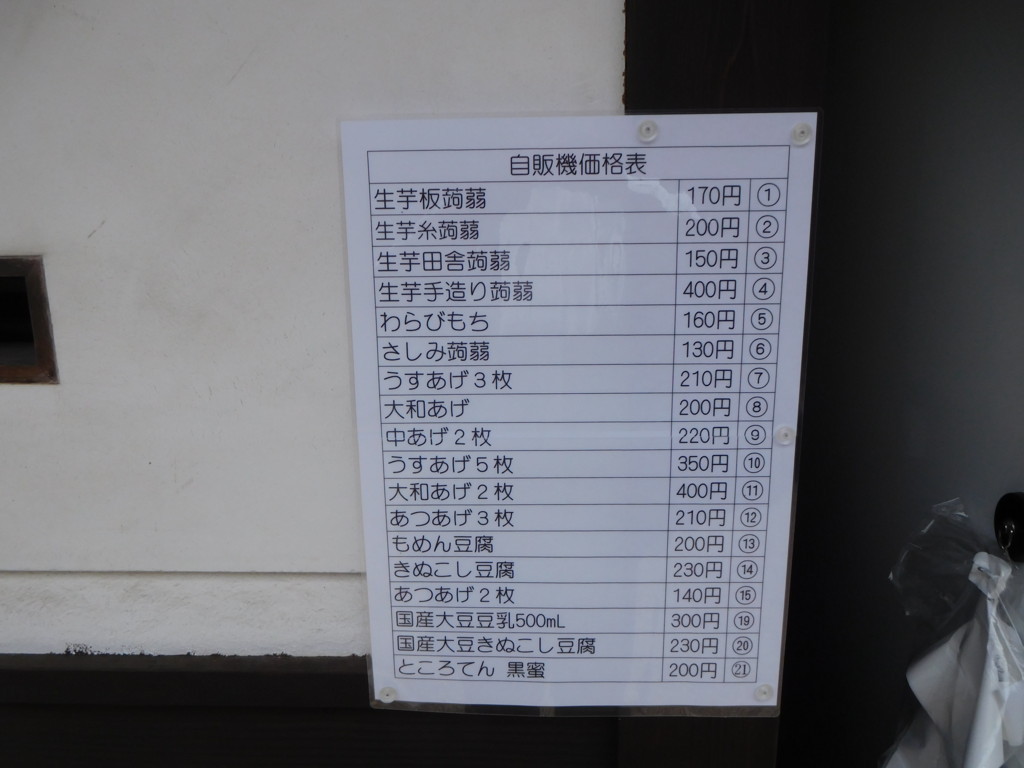 自販機価格表
生芋板蒟蒻 170円 ①
生芋糸蒟蒻 200円 ②
生芋田舎蒟蒻 150円 ③
生芋手造り蒟蒻 400円 ④
わらびもち 160円 ⑤
さしみ蒟蒻 130円 ⑥
うすあげ３枚 210円 ⑦
大和あげ 200円 ⑧
中あげ２枚 220円 ⑨
うすあげ５枚 350円 ⑩
大和あげ２枚 400円 ⑪
あつあげ３枚 210円 ⑫
もめん豆腐 200円 ⑬
きぬこし豆腐 230円 ⑭
あつあげ２枚 140円 ⑮
国産大豆豆乳500mL 300円 ⑲
国産大豆きぬこし豆腐 230円 ⑳
ところてん 黒蜜 200円 ㉑